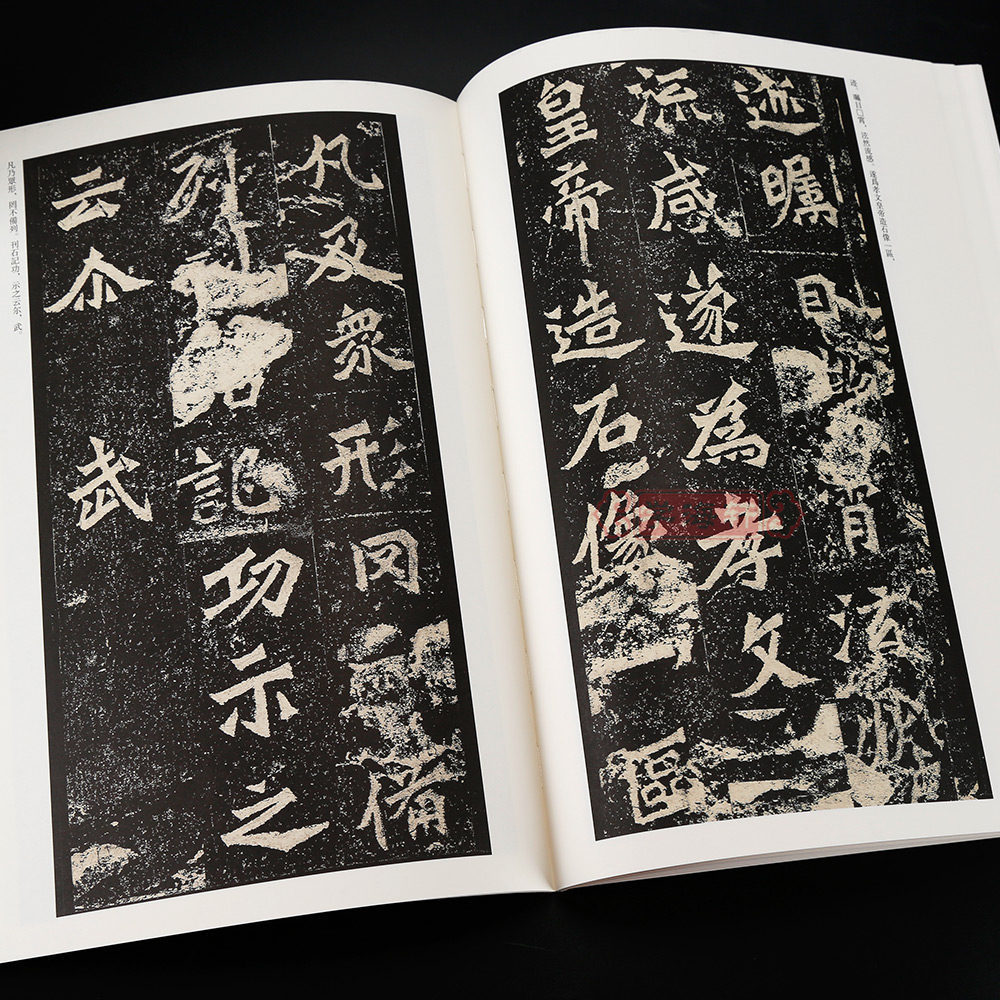 迹，矚目□霄，泫然流感，遂爲孝文皇帝造石像一區，
迹矚目霄泫然
流感遂為孝文一
皇帝造石像區
凡及衆形罔不備
列刊石記功示之
云尒武
凡乃眾形，罔不備列。刊石記功，示之云尔，武。